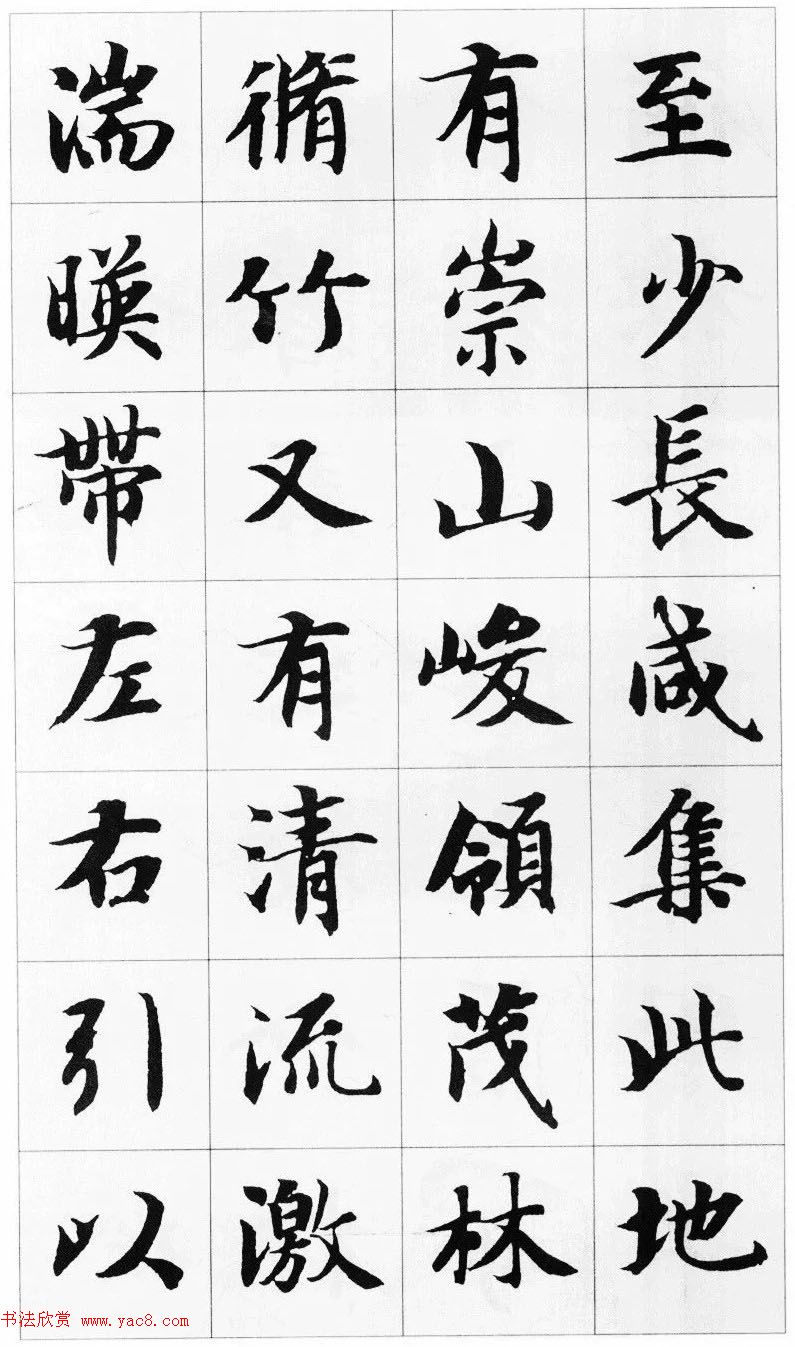 至少長咸集此地
有崇山峻領茂林
脩竹又有清流激
湍暎帶左右引以
书法欣赏 www.yac8.com